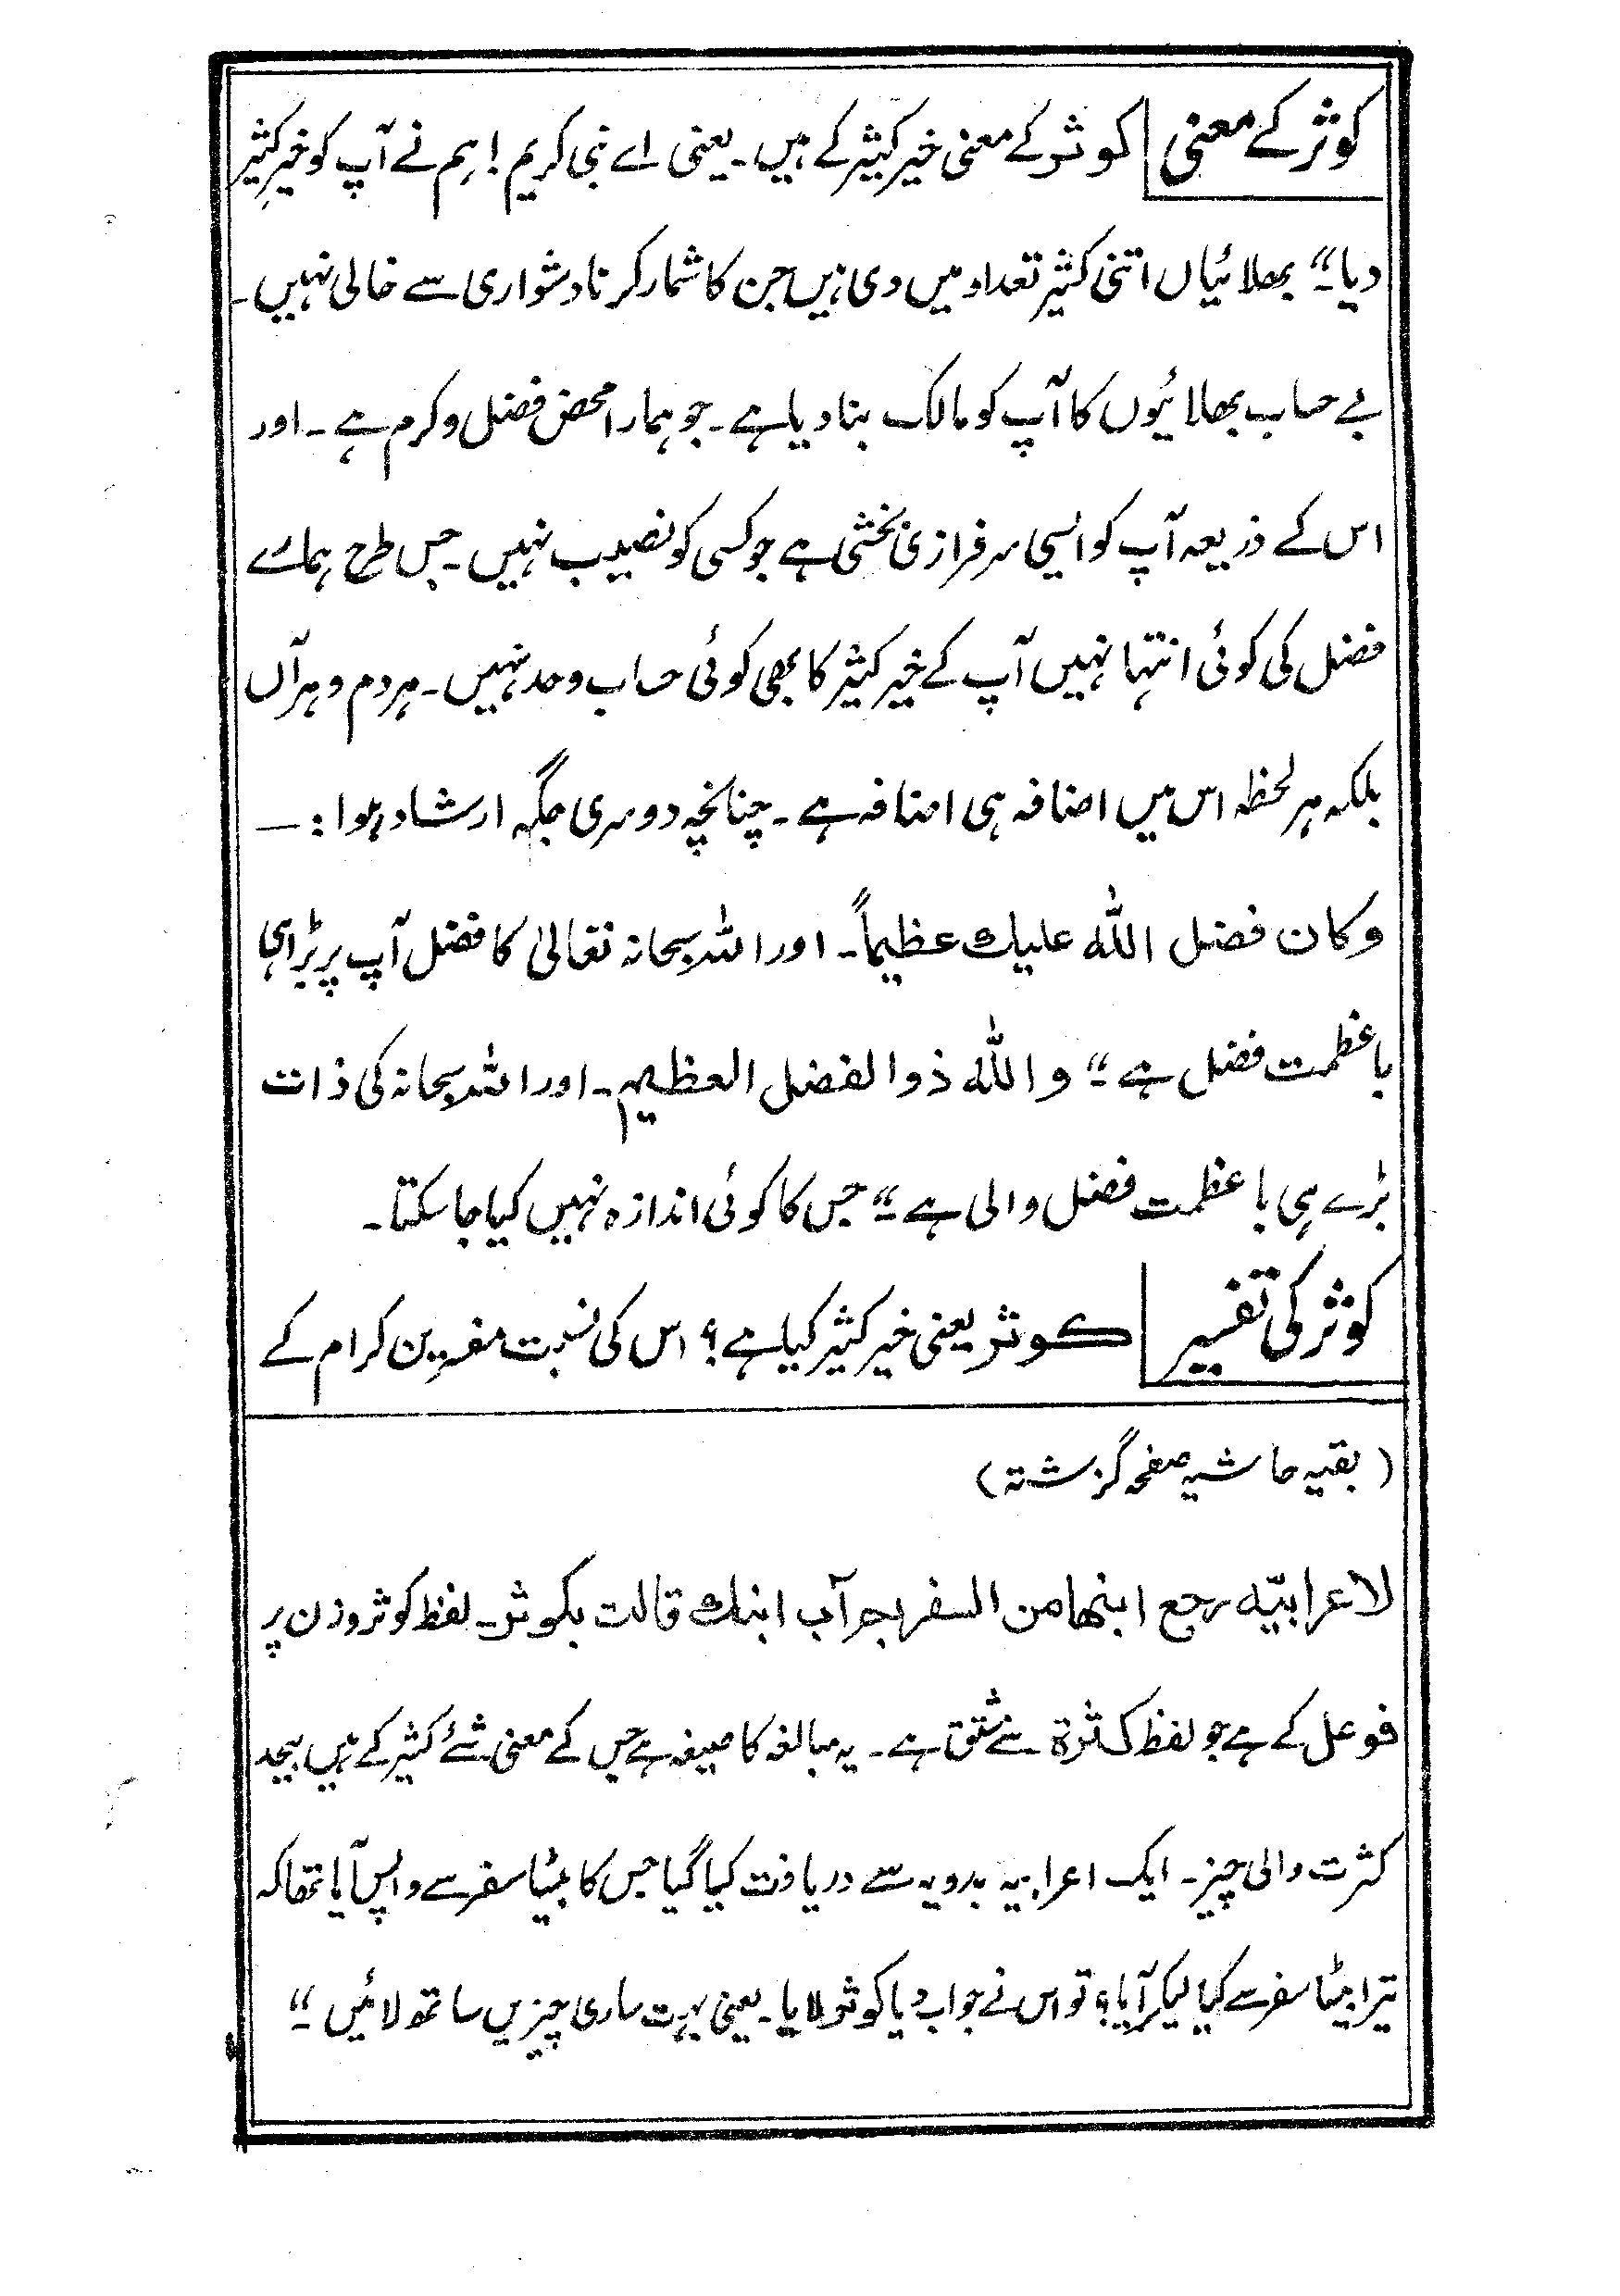 کوثر کے معنی کوثر کے معنی خیر کثیر کے ہیں۔ یعنی اے نبی کریم! ہم نے آپ کو خیرِ کثیر
دیا۔“ بھلائیاں اتنی کثیر تعداد میں دی ہیں جن کا شمار کرنا دشواری سے خالی نہیں۔
بے حساب بھلائیوں کا آپ کو مالک بنا دیا ہے۔ جو ہمارا محض فضل و کرم ہے۔ اور
اس کے ذریعہ آپ کو ایسی سرفرازی بخشی ہے جو کسی کو نصیب نہیں۔ جس طرح ہمارے
فضل کی کوئی انتہا نہیں آپ کے خیر کثیر کا بھی کوئی حساب و حد نہیں۔ ہر دم و ہر آں
بلکہ ہر لحظہ اس میں اضافہ ہی اضافہ ہے۔ چنانچہ دوسری جگہ ارشاد ہوا :—
وکان فضل اللہ علیک عظیماً۔ اور اللہ سبحانہ تعالیٰ کا فضل آپ پر بڑا ہی
با عظمت فضل ہے۔“ واللہ ذوالفضل العظیم۔ اور اللہ سبحانہ کی ذات
بڑے ہی با عظمت فضل والی ہے۔“ جس کا کوئی اندازہ نہیں کیا جا سکتا۔
کوثر کی تفسیر کوثر یعنی خیر کثیر کیا ہے؟ اس کی نسبت مفسرین کرام کے
(بقیہ حاشیہ صفحہ گزشتہ)
لاعرابیّہ رجع ابنھا من السفر بم آب ابنک قالت بکوثر۔ لفظ کوثر وزن پر
فوعل کے ہے جو لفظ کثرۃ سے مشتق ہے۔ یہ مبالغہ کا صیغہ ہے جس کے معنی شئے کثیر کے ہیں بیحد
کثرت والی چیز۔ ایک اعرابیہ بدویہ سے دریافت کیا گیا جس کا بیٹا سفر سے واپس آیا تھا کہ
تیرا بیٹا سفر سے کیا لیکر آیا؟ تو اس نے جواب دیا کوثر لایا۔ یعنی بہت ساری چیزیں ساتھ لائیں۔“